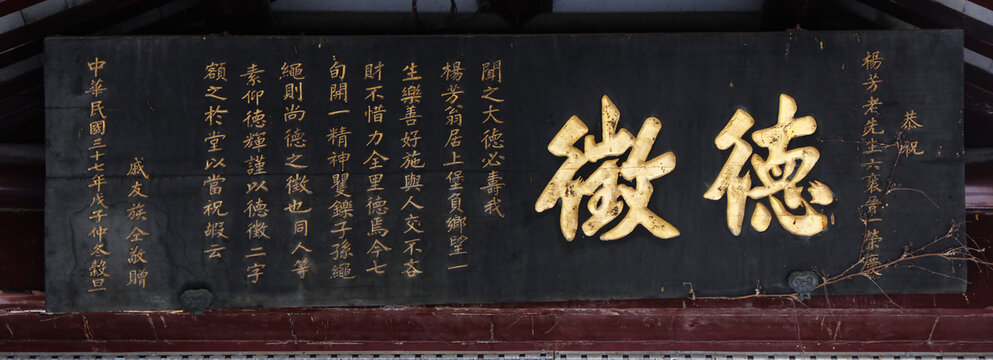 恭祝
楊芳老先生六衮晉一榮慶
德徵
聞之大德必壽我
楊芳翁居上堡負鄉望一
生樂善好施與人交不吝
財不惜力全里德焉今七
旬開一精神矍鑠子孫繩
繩則尚德之徵也同人等
素仰德輝謹以德徵二字
額之於堂以當祝嘏云
戚友族仝敬贈
中華民國三十七年戊子仲冬穀旦